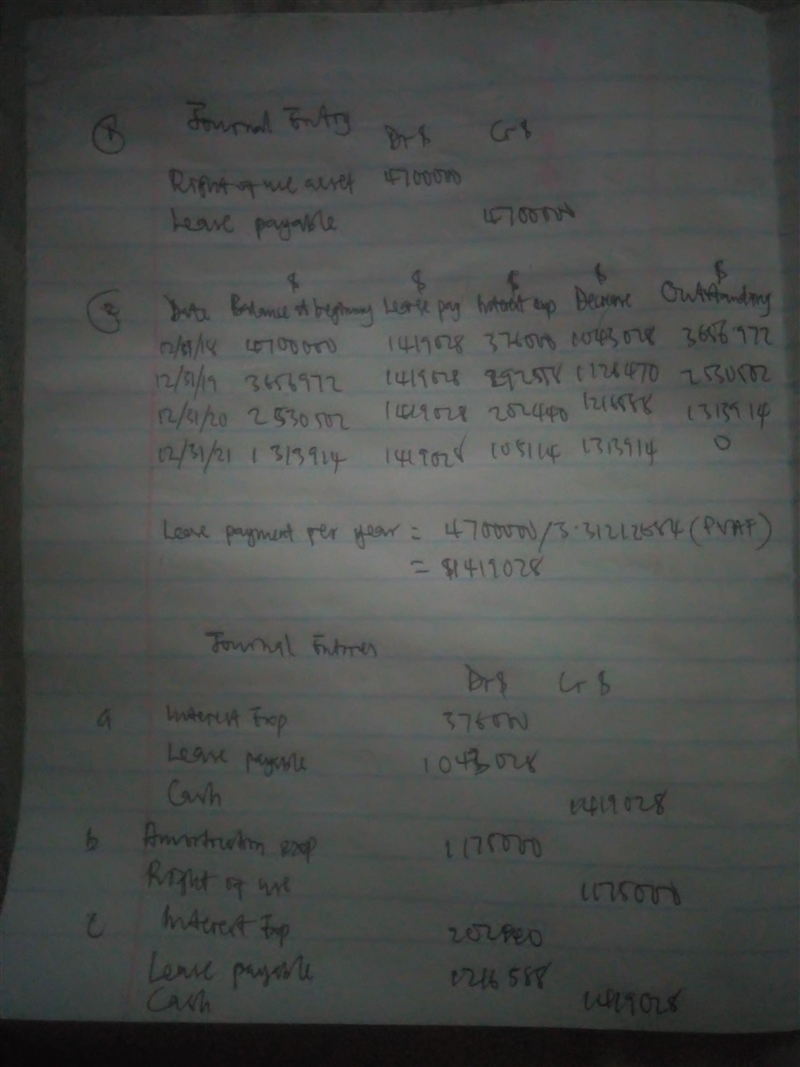 1 Journal Entry
Dr $ Cr $
Right of use asset 4700000
Lease payable 4700000
$ $ $ $ $
2 Date Balance at beginning Lease pay Interest exp Decrease Outstanding
12/31/18 4700000 1419028 376000 1043028 3656972
12/31/19 3656972 1419028 292558 1126470 2530502
12/31/20 2530502 1419028 202440 1216588 1313914
12/31/21 1313914 1419028 105114 1313914 0
Lease payment per year = 4700000/3.31212684 (PVAF)
= $1419028
Journal Entries
Dr $ Cr $
a Interest Exp 376000
Lease payable 1043028
Cash 1419028
b Amortization exp 1175000
Right of use 1175000
c Interest Exp 202440
Lease payable 1216588
Cash 1419028